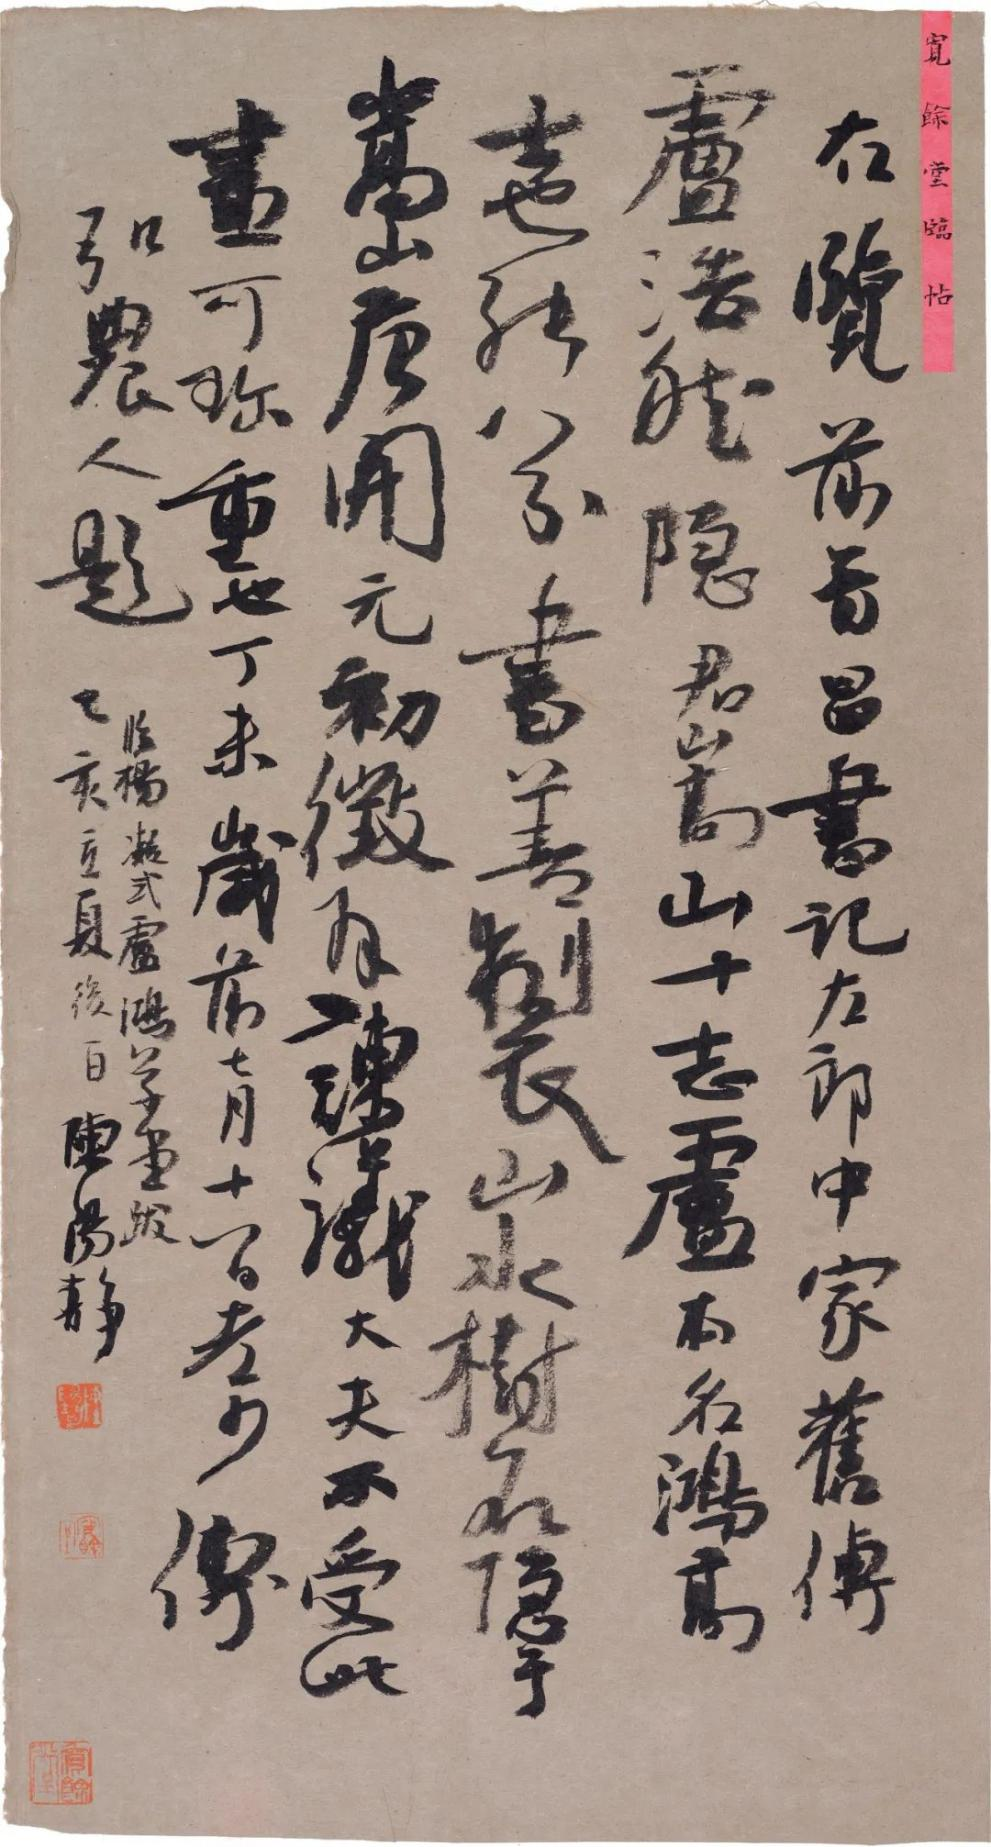 寬餘堂臨帖
右覽前晉昌書記左郎中家舊傳
盧浩然隱君嵩山十志盧本名鴻高
士也能八分書善製長山水樹石隱于
嵩山唐開元初徵为諫議大夫不受此
畫可珍重也丁未歲前七月十八日老少傅
弘農人題
臨楊凝式盧鴻草堂跋
己亥立夏後一日陳陽靜